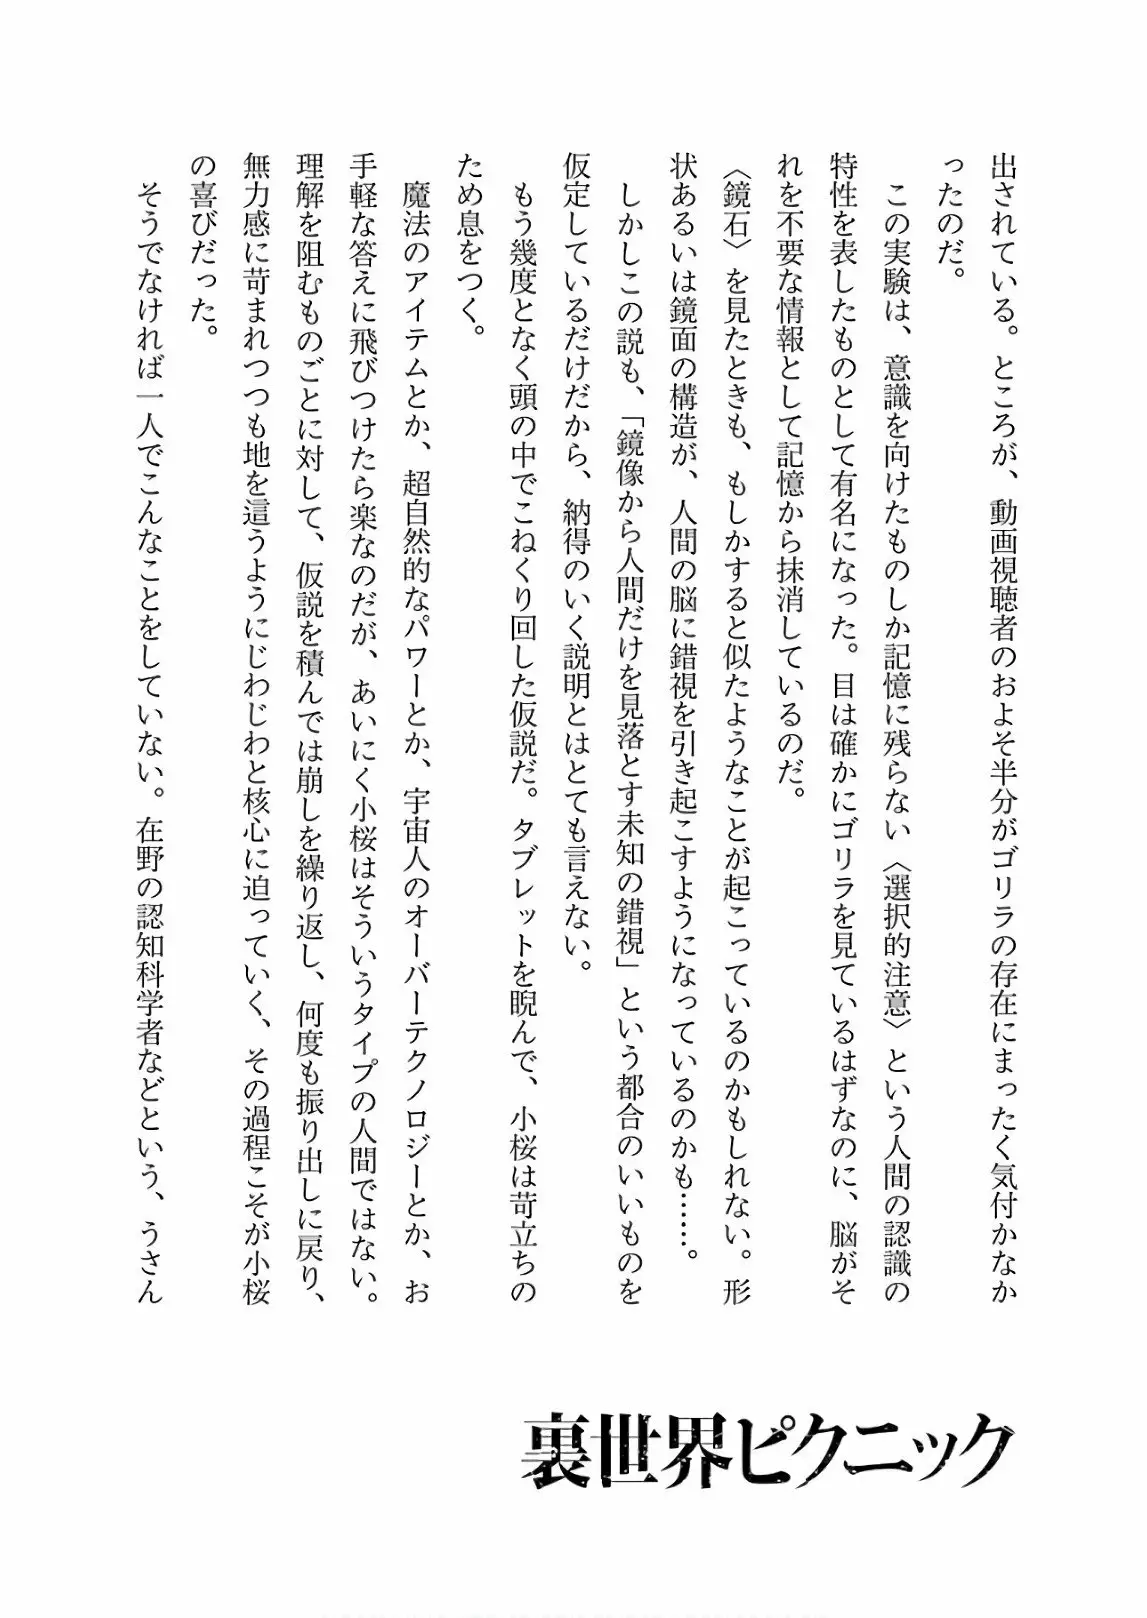 出されている。ところが、動画視聴者のおよそ半分がゴリラの存在にまったく気付かなか
ったのだ。
この実験は、意識を向けたものしか記憶に残らない〈選択的注意〉という人間の認識の
特性を表したものとして有名になった。目は確かにゴリラを見ているはずなのに、脳がそ
れを不要な情報として記憶から抹消しているのだ。
〈鏡石〉を見たときも、もしかすると似たようなことが起こっているのかもしれない。形
状あるいは鏡面の構造が、人間の脳に錯視を引き起こすようになっているのかも……。
しかしこの説も、「鏡像から人間だけを見落とす未知の錯視」という都合のいいものを
仮定しているだけだから、納得のいく説明とはとても言えない。
もう幾度となく頭の中でこねくり回した仮説だ。タブレットを睨んで、小桜は苛立ちの
ため息をつく。
魔法のアイテムとか、超自然的なパワーとか、宇宙人のオーバーテクノロジーとか、お
手軽な答えに飛びつけたら楽なのだが、あいにく小桜はそういうタイプの人間ではない。
理解を阻むものごとに対して、仮説を積んでは崩しを繰り返し、何度も振り出しに戻り、
無力感に苛まれつつも地を這うようにじわじわと核心に迫っていく、その過程こそが小桜
の喜びだった。
そうでなければ一人でこんなことをしていない。在野の認知科学者などという、うさん
裏世界ピクニック